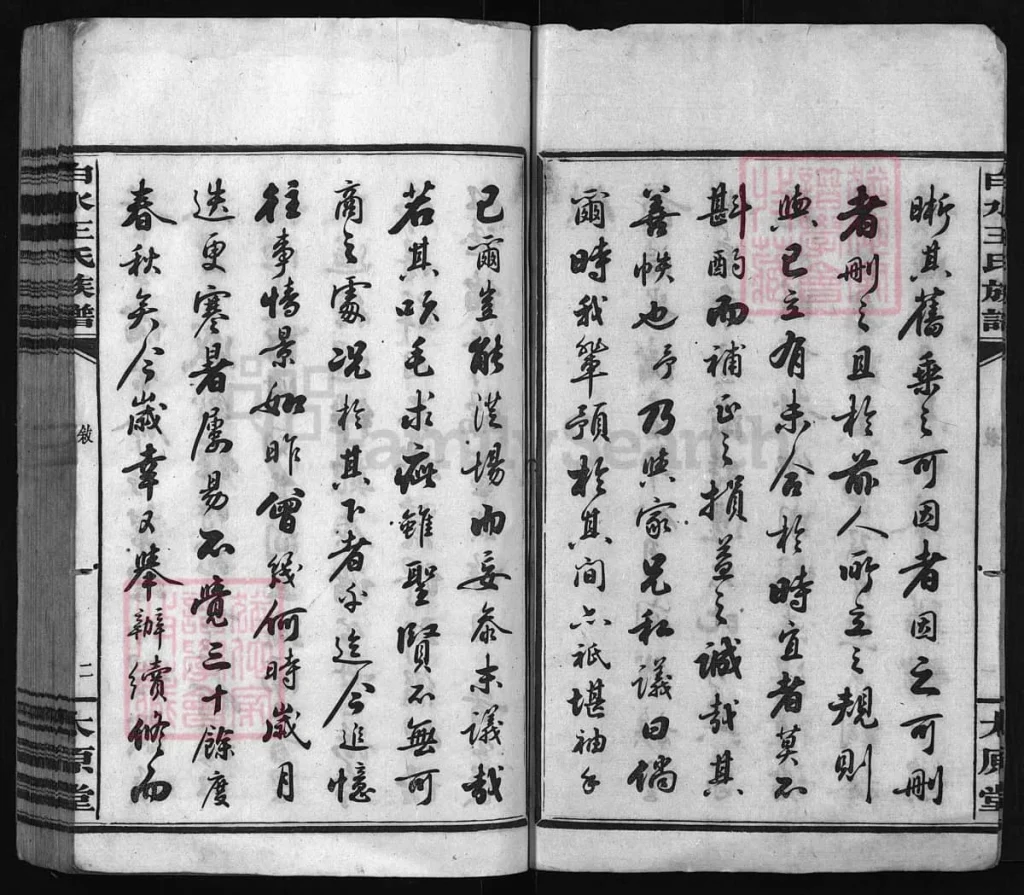 晰其舊乘之可因者因之可刪
者刪之且於前人所立之規則
與已立有未合於時宜者莫不
斟酌而補正之損益之誠哉其
善帙也予乃與家兄私議曰倘
爾時我輩預於其間亦祇堪袖手
已爾豈能從場而妄參末議哉
若其吹毛求疵雖聖賢不無可
商之處況於其下者乎迄今追憶
往事情景如昨曾幾何時歲月
迭更寒暑屢易不覺三十餘度
春秋矣今歲幸又舉辦續修而
白水王氏族譜
敘
二
太原堂
白水王氏族譜
敘
太原堂
familysearch